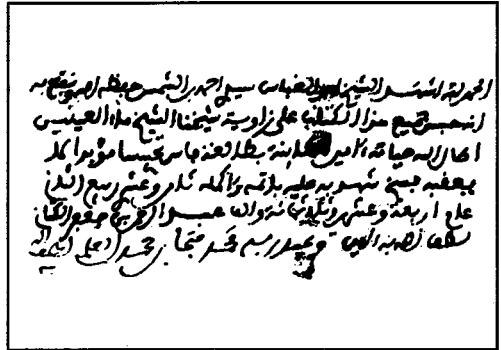 الحمد لله اشهد الشيخ ابو العباس سيدي احمد بن الشمس حفظه الله ونفع به
انه حبس جميع هذا الكتاب على زاوية شيخنا الشيخ ماء العينين
اطال الله حياته ءامين الكاينة بطالعة فاس تحبيسا مؤبدا
شهد به عليه باتمه واكمله وعشري ربيع الثاني
عام اربعة وعشرين وثلاثمائة والف عبد الرحمن بن جعفر الكتاني
لطف الله به ءامين وعبد ربه محمد بن محمد